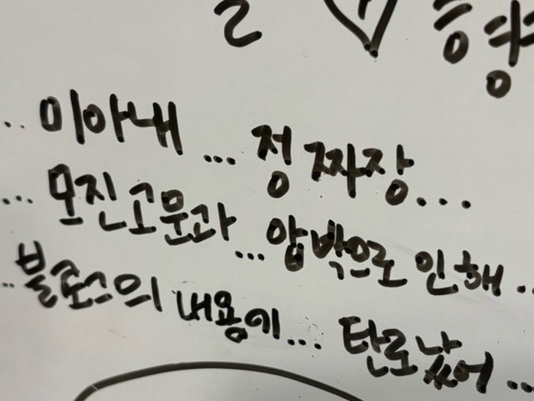 2 7
..미아내 ... 정짜장...
... 모진고문과 ... 압박으로 인해 ..
.. 블로스의 내용이... 탄로났어 ...